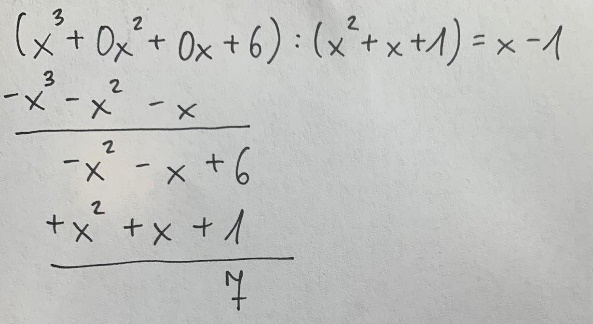 (x³ + 0x² + 0x + 6) : (x² + x + 1) = x - 1
-x³ - x² - x
-x² - x + 6
+x² + x + 1
7